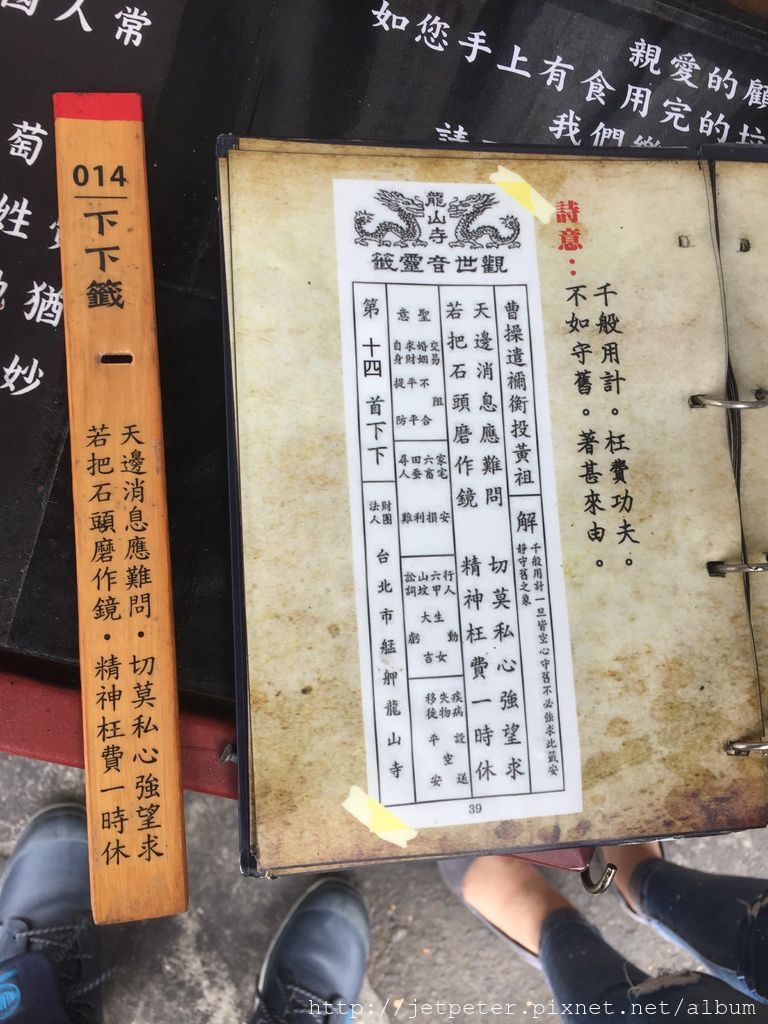 人常
萄
姓
猶
妙
親愛的顧
如您手上有食用完的
我們樂
請
014
下下籤
天邊消息應難問。切莫私心強望求
若把石頭磨作鏡。精神枉費一時休
詩意：
千般用計。枉費功夫。
不如守舊。著甚來由。
龍山寺
籤靈音世觀
曹操遣禰衡投黃祖
解
千般用計一旦皆空心守舊不必強求此籤安
靜守舊之象
天邊消息應難問 切莫私心強望求
若把石頭磨作鏡 精神枉費一時休
聖意
交易阻合
婚姻不
求財平平
自身提防
家宅安
六畜損
田蚕利
尋人難
行人動
六甲生女
山坟大吉
訟詞虧
疾病設送
失物空
移徙平安
第十四首下下
財團法人
台北市艋舺龍山寺
39
http://jetpeter.pixnet.net/album